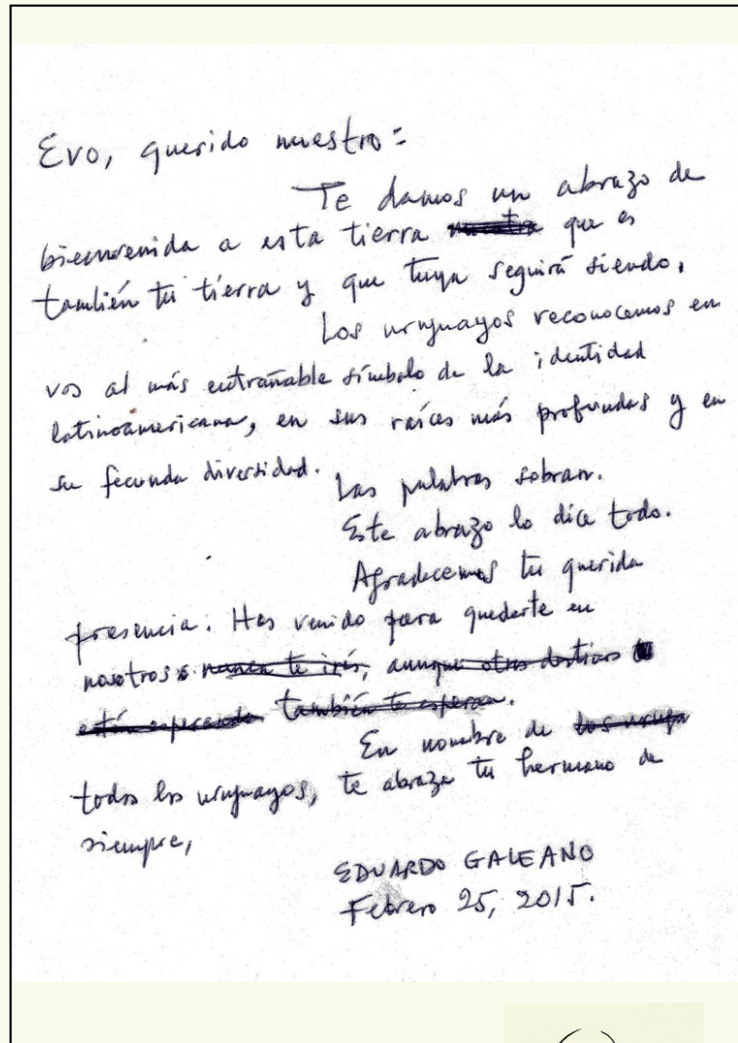 Evo, querido nuestro:
Te damos un abrazo de
bienvenida a esta tierra nuestra que es
también tu tierra y que tuya seguirá siendo.
Los uruguayos reconocemos en
vos al más entrañable símbolo de la identidad
latinoamericana, en sus raíces más profundas y en
su fecunda diversidad.
Las palabras sobran.
Este abrazo lo dice todo.
Agradecemos tu querida
presencia. Has venido para quedarte en
nosotros: nunca te irás, aunque otros destinos
están esperando también te esperan.
En nombre de los urugua
todos los uruguayos, te abraza tu hermano de
siempre,
EDUARDO GALEANO
Febrero 25, 2015.